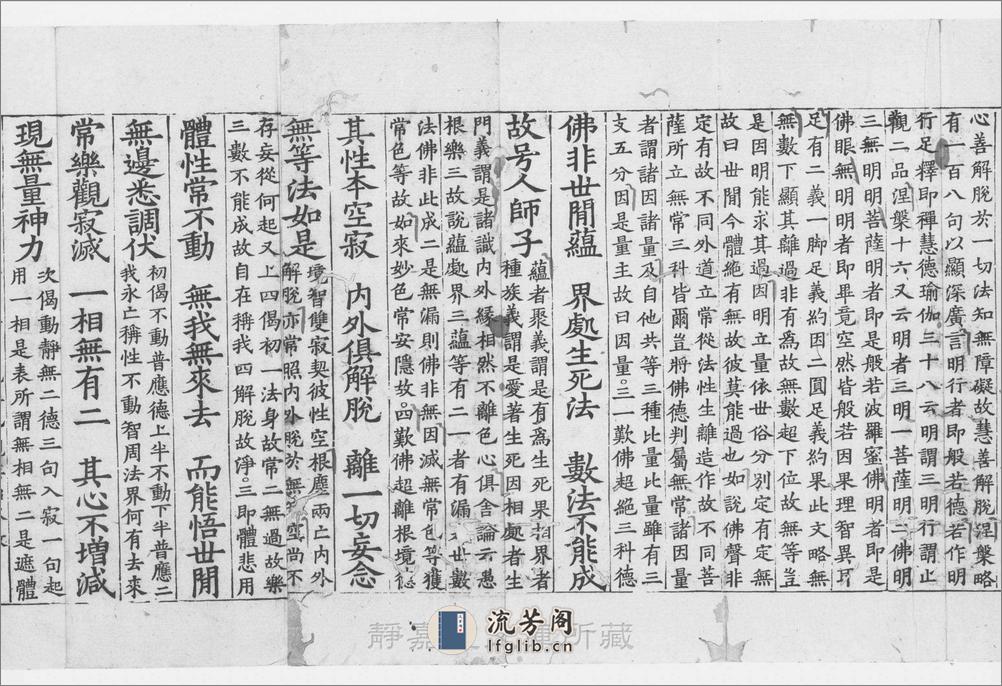 心善解脫於一切法知無障礙故慧善解脫涅槃略
有一百八句以顯深廣言明行者即般若德若作明
行足釋即禪慧德瑜伽三十八云明謂三明行謂止
觀二品涅槃十六又云明者三明一菩薩明二佛明
三無明明菩薩明者即是般若波羅蜜佛明者即是
佛眼無明明者即畢竟空然皆般若因果理智異
足有二義一脚足義約因二圓足義約果此文略無
無數下顯其離過非有為故無數起下位故無等豈
是因明能求其過因明立量依世俗分別定有定無
故曰世間今體絕有無故彼莫能過也如說佛聲非
定有故不同外道立常從法性生離造作故不同菩
薩所立無常三科皆爾豈將佛德判屬無常諸因量
者謂諸因諸量及自他共等三種比量比量雖有三
支五分因是量主故曰因量三一歎佛超絕三科德
佛非世間蘊 界處生死法 數法不能成
故号人師子 蘊者聚義謂是有為生死果相界者
種族義謂是愛著生死因相處者生
門義謂是諸識內外緣相然不離色心俱舍論云愚
根樂三故說蘊處界三蘊等有二一者有漏世數
法佛非此成二是無漏則佛非無因滅無常色等獲
常色等故如來妙色常安隱故四歎佛超離根境德
其性本空寂 內外俱解脫 離一切妄念
無等法如是 境智雙寂契彼性空根塵兩亡內外
解脫亦常照內外脫於無空尚不
存妄從何起又上四偈初一法身故常二無過故樂
三數不能成故自在稱我四解脫故淨三即體悲用
體性常不動 無我無來去 而能悟世間
無邊悉調伏 初偈不動普應德上半不動下半普應二
我永亡稱性不動智周法界何有去來
常樂觀寂滅 一相無有二 其心不增減
現無量神力 次偈動靜無二德三句入寂一句起
用一相是表所謂無相無二是遮體
流芳阁
lfglib.cn
靜嘉 所藏